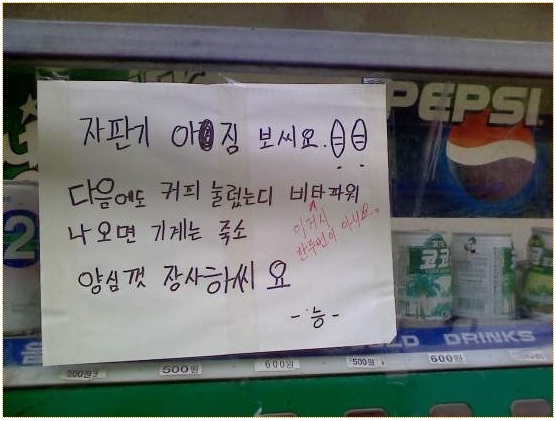 PEPSI
자판기 아징 보씨요.
다음에도 커피 눌렀는디 비타파워
나오면 기계는 죽소
이거시
한두번이 아시요.
양심껏 장사하씨요
-능-
2
코코
코코
COLD DRINKS
500원
500원
600원
500원
600원